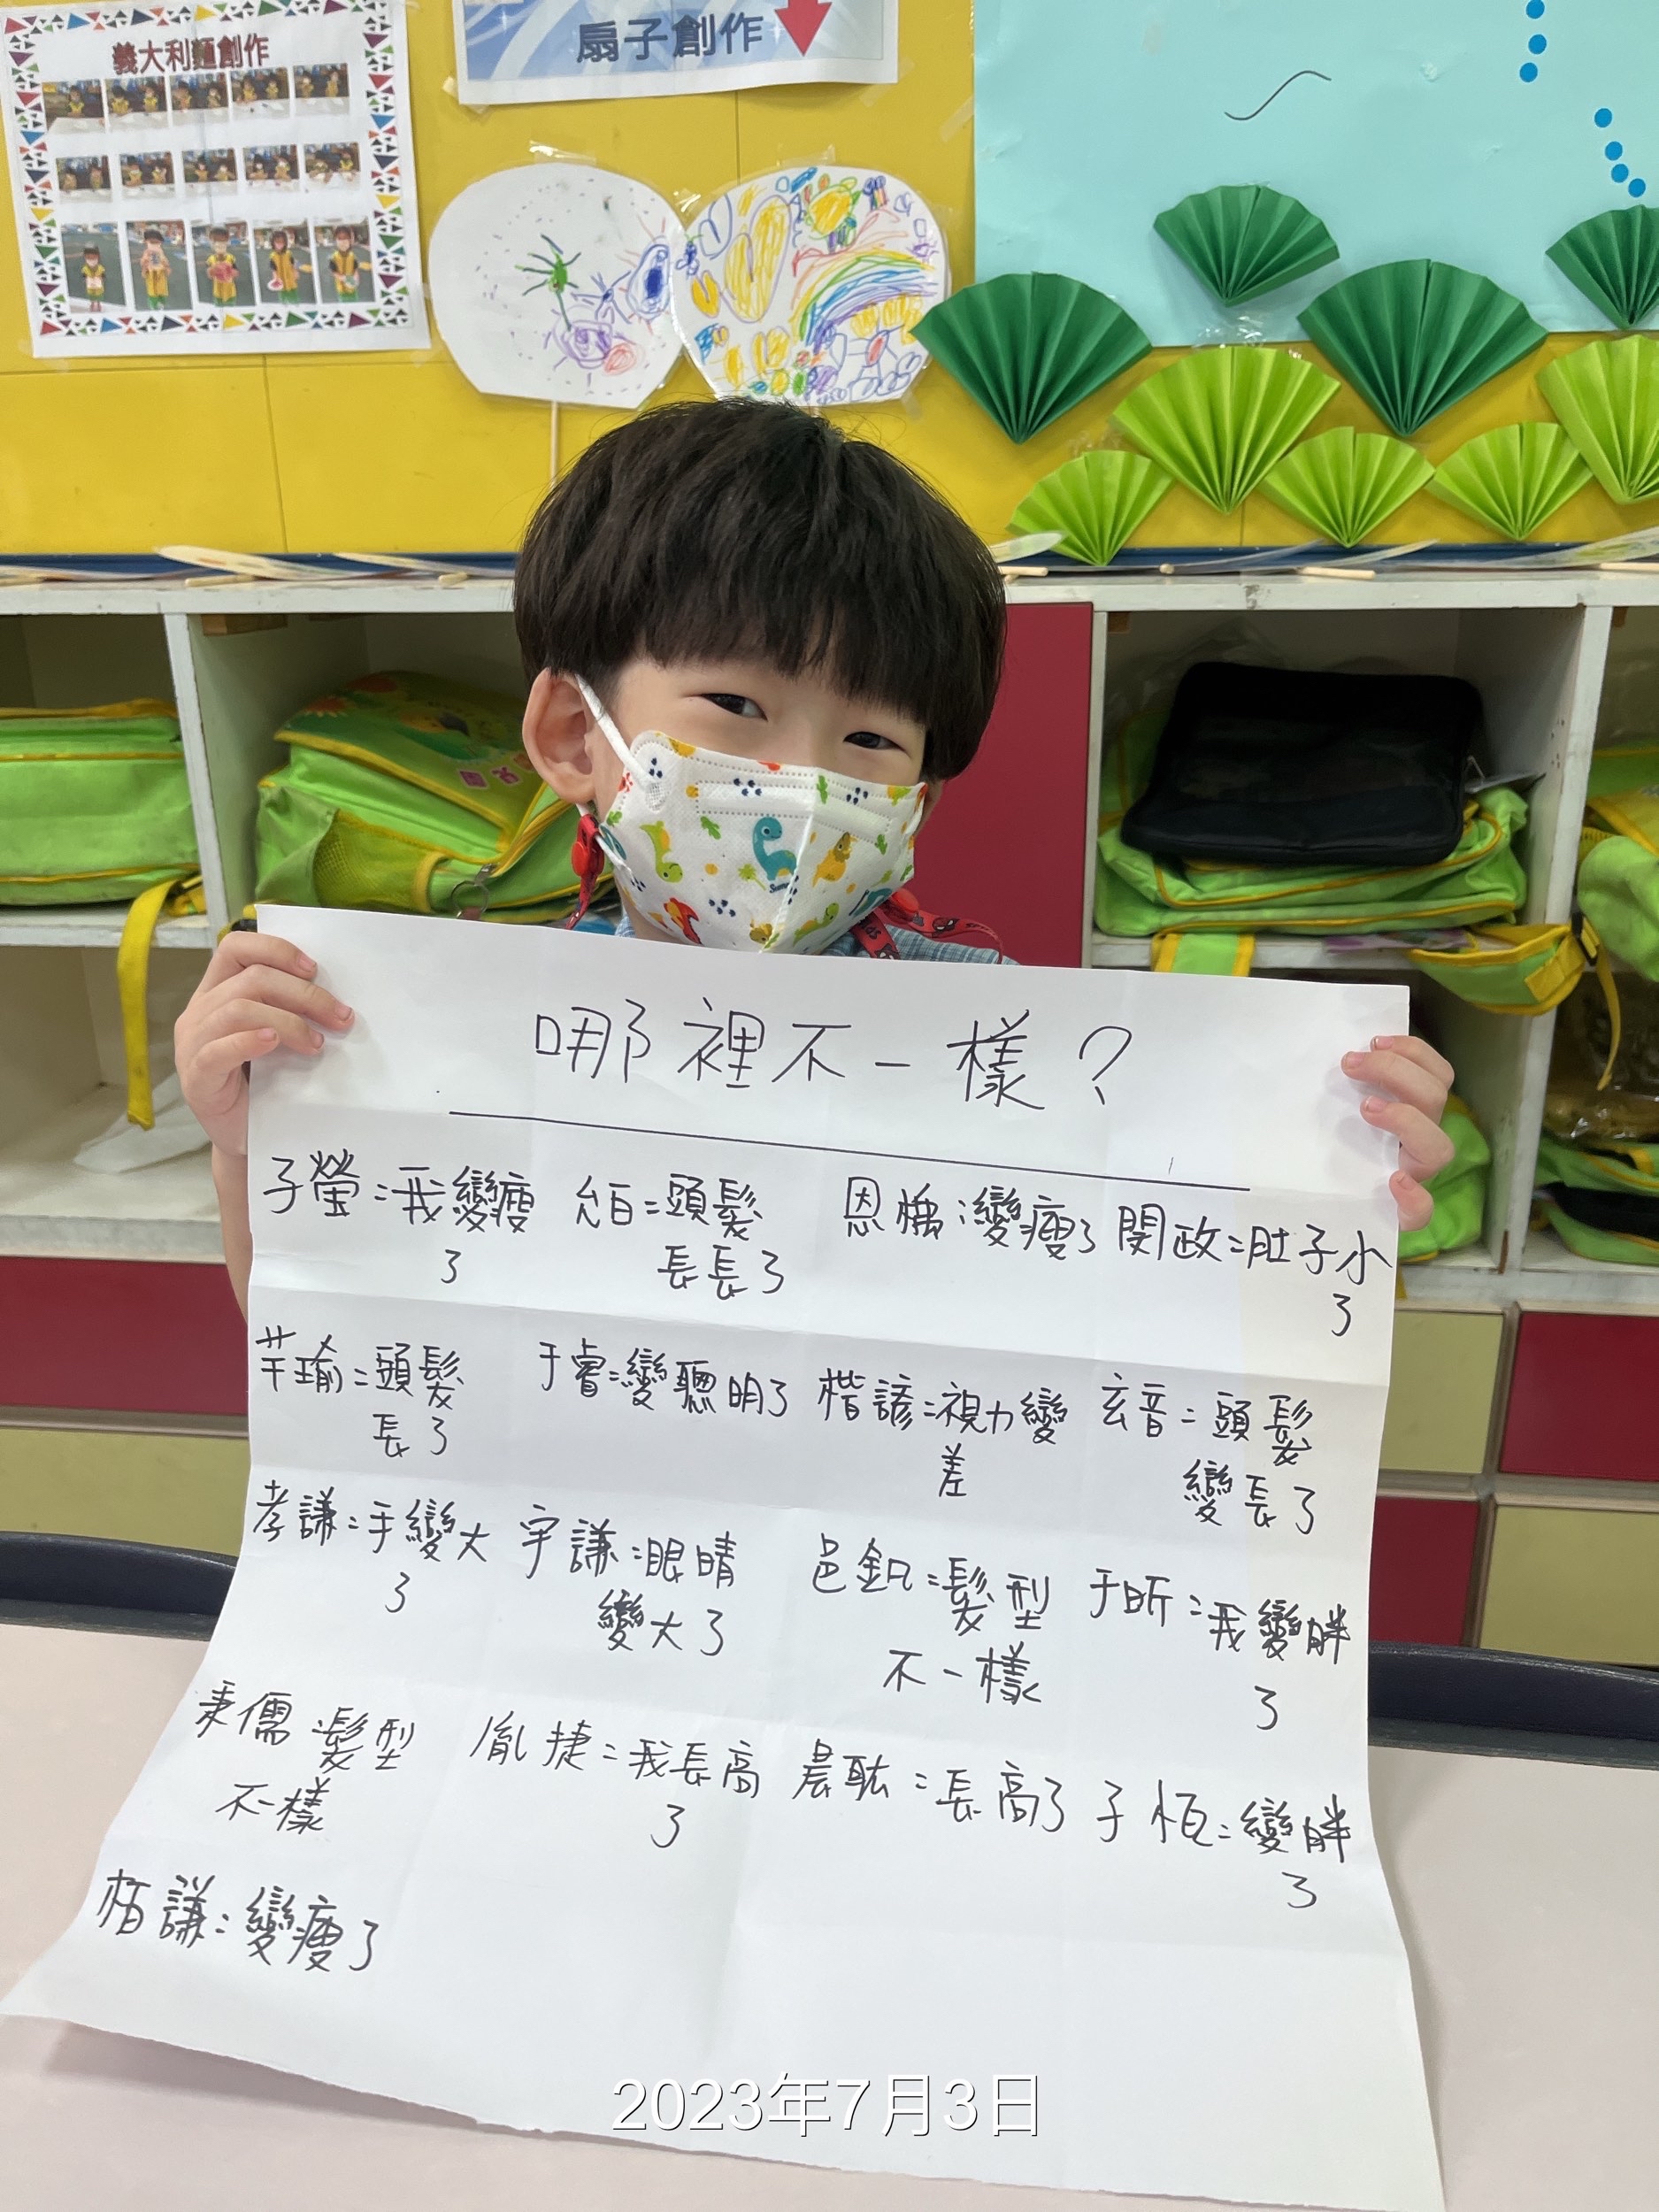 義大利麵創作
扇子創作
哪裡不一樣？
子螢：我變瘦 允百：頭髮 恩 ：變瘦了 閔政：肚子小
了 長長了 了
芊瑜：頭髮 于睿：變聰明了 楷諺：視力變 玄音：頭髮
長了 差 變長了
孝謙：手變大 宇謙：眼睛 邑釩：髮型 于昕：我變胖
了 變大了 不一樣 了
秉儒：髮型 胤捷：我長高 晨耾：長高了 子恆：變胖
不一樣 了 了
栢謙：變瘦了
2023年7月3日